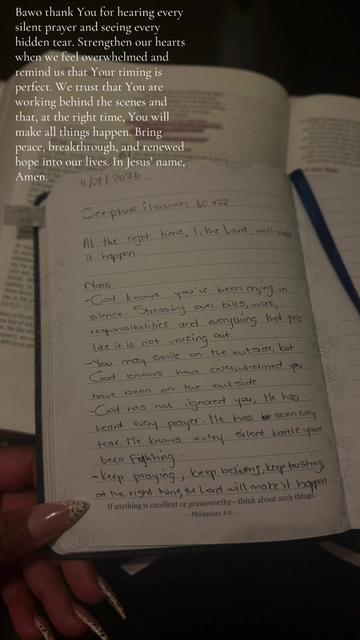 Bawo thank You for hearing every
silent prayer and seeing every
hidden tear. Strengthen our hearts
when we feel overwhelmed and
remind us that Your timing is
perfect. We trust that You are
working behind the scenes and
that, at the right time, You will
make all things happen. Bring
peace, breakthrough, and renewed
hope into our lives. In Jesus' name,
Amen.
11/08/2026
Scripture: Isaiah 60 v22
At the right time, I, the Lord, will make
it happen
Notes
-God knows you've been crying in
silence. Stressing over bills, work,
responsibilities and everything that
like it is not working out.
-You may smile on the outside, but
God knows how overwhelmed you
have been on the outside
-God has not ignored you, He has
heard every prayer. He has seen every
tear. He knows every silent battle your
been Fighting.
-keep praying, keep believing, keep trusting,
at the right time, the Lord will make it happen
If anything is excellent or praiseworthy—think about such things.
– Philippians 4:8 –